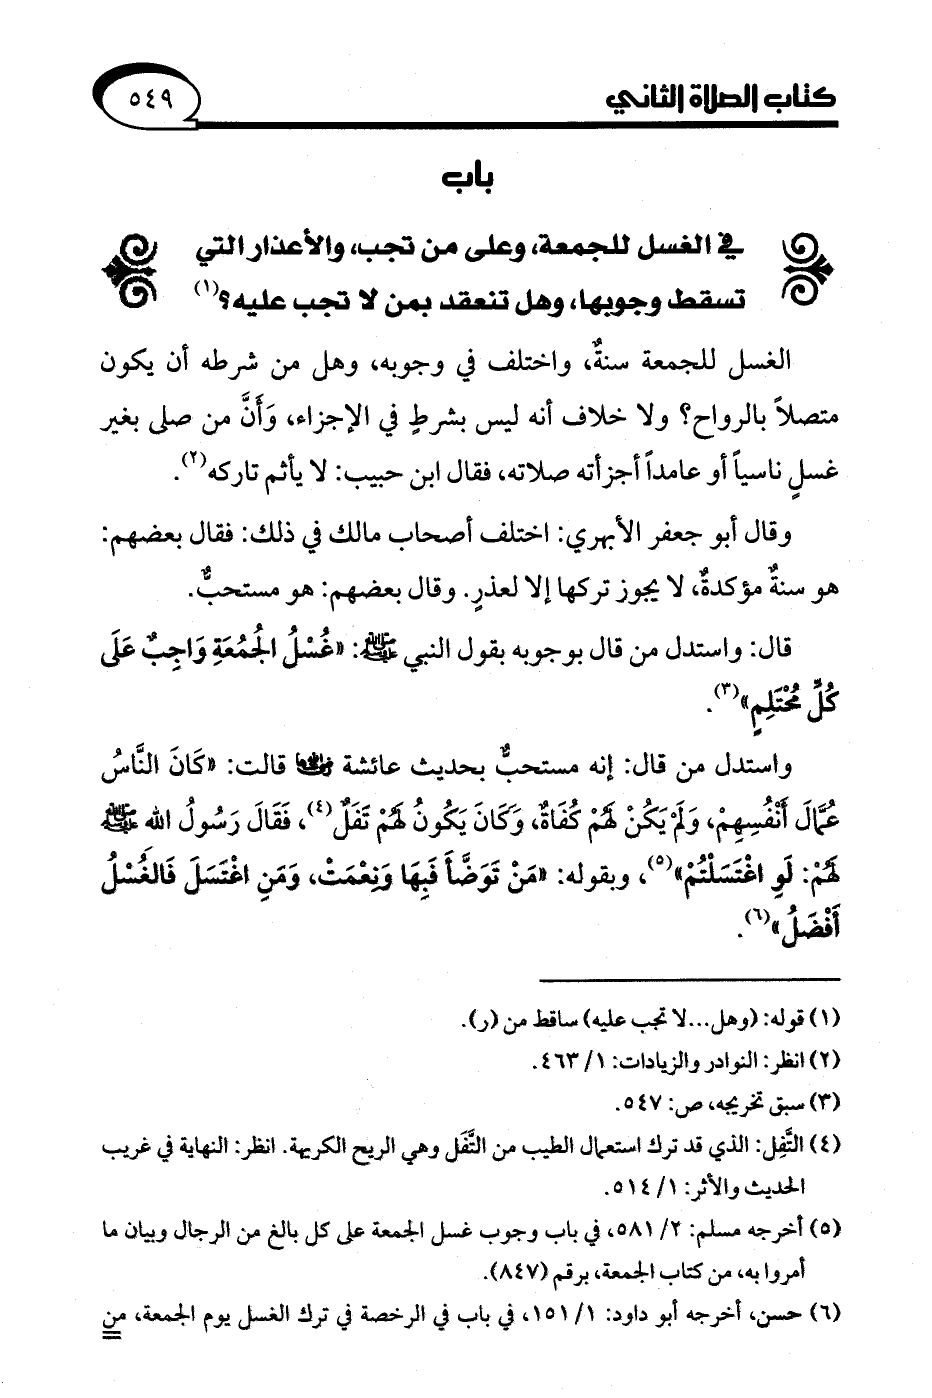 كتاب الصلاة الثاني
٥٤٩
باب
في الغسل للجمعة، وعلى من تجب، والأعذار التي
تسقط وجوبها، وهل تنعقد بمن لا تجب عليه؟(١)
الغسل للجمعة سنةٌ، واختلف في وجوبه، وهل من شرطه أن يكون
متصلاً بالرواح؟ ولا خلاف أنه ليس بشرطٍ في الإجزاء، وَأَنَّ من صلى بغير
غسلٍ ناسياً أو عامداً أجزأته صلاته، فقال ابن حبيب: لا يأثم تاركه(٢).
وقال أبو جعفر الأبهري: اختلف أصحاب مالك في ذلك: فقال بعضهم:
هو سنةٌ مؤكدةٌ، لا يجوز تركها إلا لعذرٍ. وقال بعضهم: هو مستحبٌّ.
قال: واستدل من قال بوجوبه بقول النبي ﷺ: «غُسْلُ الجُمُعَةِ وَاجِبٌ عَلَى
كُلِّ مُحْتَلِمٍ»(٣).
واستدل من قال: إنه مستحبٌّ بحديث عائشة رضي الله عنها قالت: «كَانَ النَّاسُ
عُمَّالَ أَنْفُسِهِمْ، وَلَمْ يَكُنْ لَهُمْ كُفَاةٌ، وَكَانَ يَكُونُ لَهُمْ تَفَلٌ(٤)، فَقَالَ رَسُولُ الله ﷺ
لَهُمْ: لَوِ اغْتَسَلْتُمْ»(٥)، وبقوله: «مَنْ تَوَضَّأَ فَبِهَا وَنِعْمَتْ، وَمَنِ اغْتَسَلَ فَالغُسْلُ
أَفْضَلُ»(٦).
(١) قوله: (وهل...لا تجب عليه) ساقط من (ر).
(٢) انظر: النوادر والزيادات: ١/ ٤٦٣.
(٣) سبق تخريجه، ص: ٥٤٧.
(٤) التَّفِل: الذي قد ترك استعمال الطيب من التَّفَل وهي الريح الكريهة. انظر: النهاية في غريب
الحديث والأثر: ١/ ٥١٤.
(٥) أخرجه مسلم: ٢/ ٥٨١، في باب وجوب غسل الجمعة على كل بالغ من الرجال وبيان ما
أمروا به، من كتاب الجمعة، برقم (٨٤٧).
(٦) حسن، أخرجه أبو داود: ١/ ١٥١، في باب في الرخصة في ترك الغسل يوم الجمعة، من